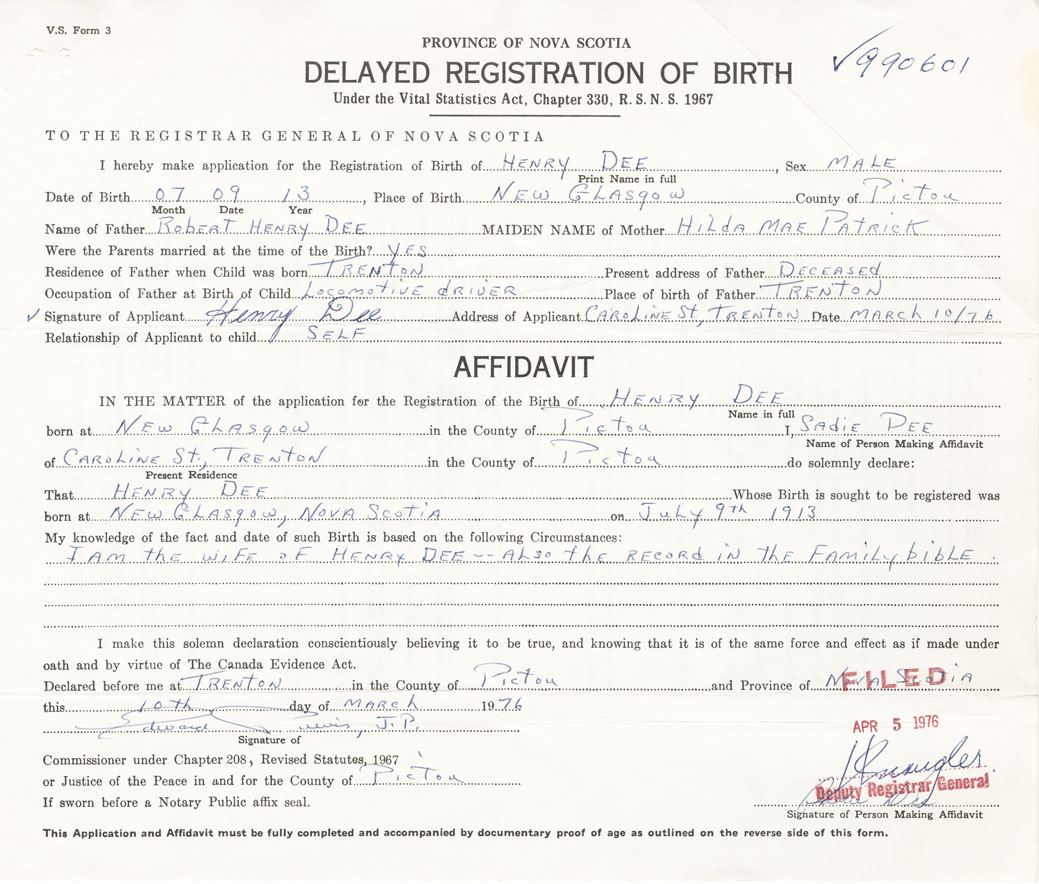 V.S. Form 3
PROVINCE OF NOVA SCOTIA
DELAYED REGISTRATION OF BIRTH
✓990601
Under the Vital Statistics Act, Chapter 330, R. S. N. S. 1967
TO THE REGISTRAR GENERAL OF NOVA SCOTIA
I hereby make application for the Registration of Birth of HENRY DEE, Sex MALE
Print Name in full
Date of Birth 07 09 13, Place of Birth NEW GLASGOW County of Pictou
Month Date Year
Name of Father ROBERT HENRY DEE MAIDEN NAME of Mother HILDA MAE PATRICK
Were the Parents married at the time of the Birth? YES
Residence of Father when Child was born TRENTON Present address of Father DECEASED
Occupation of Father at Birth of Child LOCOMOTIVE DRIVER Place of birth of Father TRENTON
✓ Signature of Applicant Henry Dee Address of Applicant CAROLINE ST, TRENTON Date MARCH 10/76
Relationship of Applicant to child SELF
AFFIDAVIT
IN THE MATTER of the application for the Registration of the Birth of HENRY DEE
Name in full
born at NEW GLASGOW in the County of Pictou I, SADIE DEE
Name of Person Making Affidavit
of CAROLINE ST, TRENTON in the County of Pictou do solemnly declare:
Present Residence
That HENRY DEE Whose Birth is sought to be registered was
born at NEW GLASGOW, NOVA SCOTIA on July 9th 1913
My knowledge of the fact and date of such Birth is based on the following Circumstances:
I AM THE WIFE OF HENRY DEE -- ALSO THE RECORD IN THE FAMILY BIBLE.
I make this solemn declaration conscientiously believing it to be true, and knowing that it is of the same force and effect as if made under
oath and by virtue of The Canada Evidence Act.
Declared before me at TRENTON in the County of Pictou and Province of NOVA SCOTIA
FILED
this 10th day of MARCH 1976
APR 5 1976
Edward J.P.
Signature of
Commissioner under Chapter 208, Revised Statutes, 1967
or Justice of the Peace in and for the County of Pictou
Deputy Registrar General
If sworn before a Notary Public affix seal.
Signature of Person Making Affidavit
This Application and Affidavit must be fully completed and accompanied by documentary proof of age as outlined on the reverse side of this form.